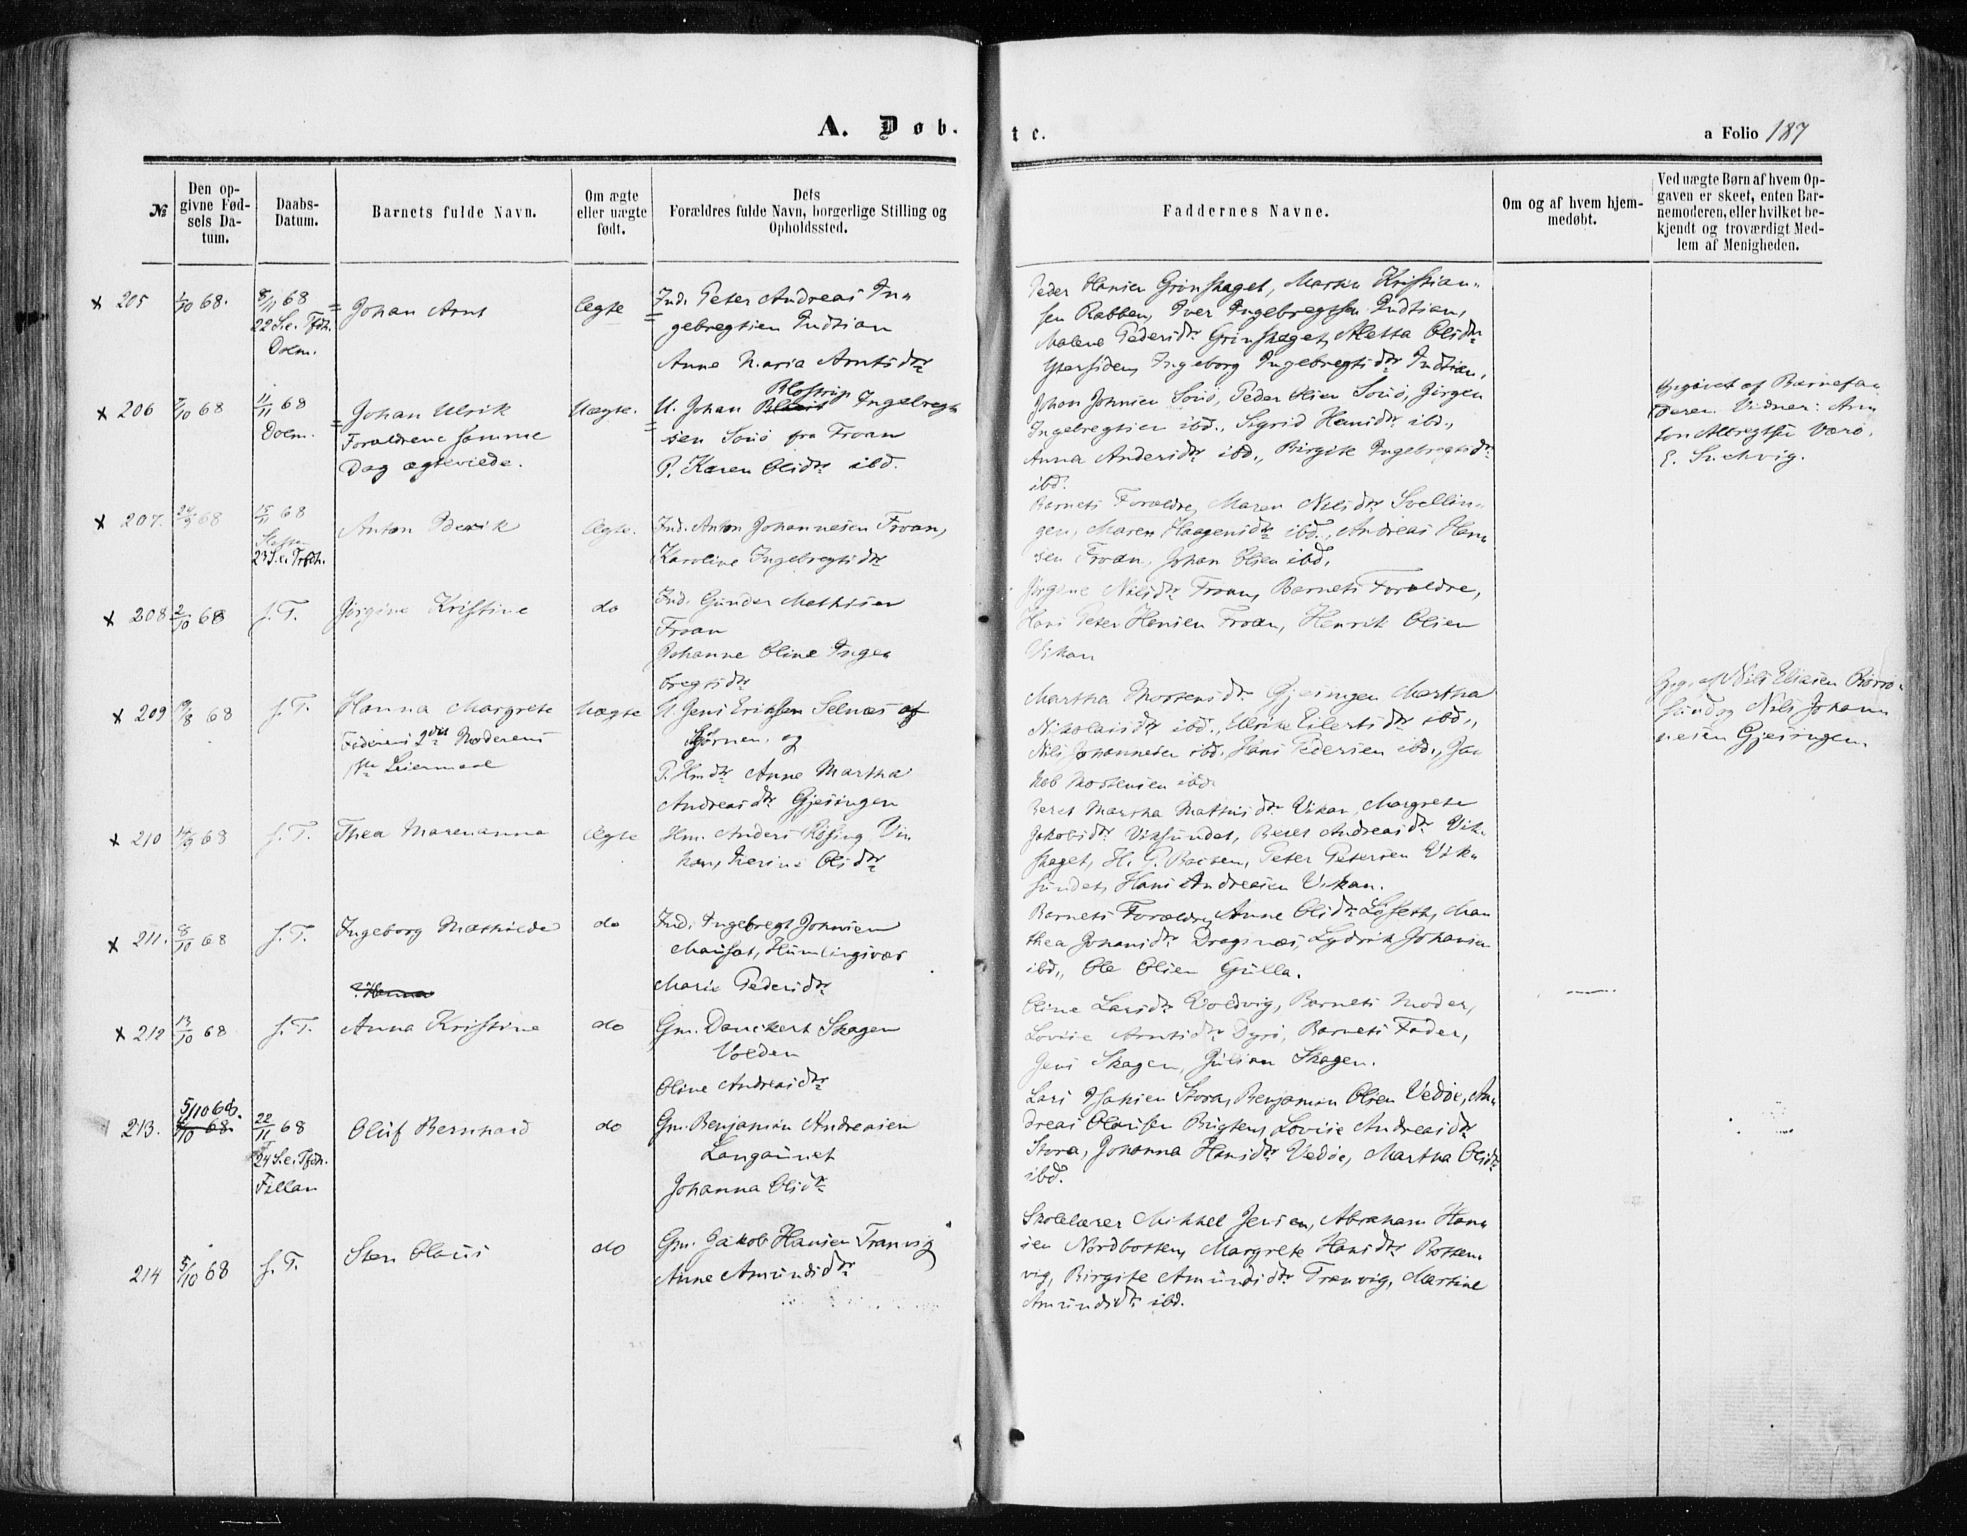 A. Døb.
te.
a Folio 187
№
Den op-
givne Fød-
sels Da-
tum.
Daabs-
Datum.
Barnets fulde Navn.
Om ægte
eller uægte
født.
Dets
Forældres fulde Navn, borgerlige Stilling og
Opholdssted.
Faddernes Navne.
Om og af hvem hjem-
medøbt.
Ved uægte Børn af hvem Op-
gaven er skeet, enten Bar-
nemoderen, eller hvilket be-
kjendt og troværdigt Med-
lem af Menigheden.
x 205
/10 68.
8/11 68
22 S. e. Tfdh.
Dolm.
Johan Arnt
Ægte
Ind. Peter Andreas In-
gebregtsen Indtian
Anne Maria Arntsdtr
Peder Hansen Grindskaget, Martin Kristian-
sen Rabben, Iver Ingebregtsen Indtian,
Malene Pedersdtr Grindskaget, Metta Olsdtr
Ytersiden, Ingeborg Ingebregtsdtr Indtian.
x 206
7/10 68
11/11 68
Dolm.
Johan Ulrik
Forældrene samme
Dag ægteviede.
Uægte.
U. Johan Blostrup Ingebregt-
sen Souø fra Froan
P. Karen Olsdtr ibd.
Johan Johnsen Souø, Peder Souø, Jørgen
Ingebregtsen ibd., Sigrid Hansdtr ibd.,
Anna Andersdtr ibd., Birgite Ingebregtsdtr
ibd.
Opgivet af Barnefa-
deren. Vidner: An-
ton Albregtsen Værø.
E. Suchvig.
x 207.
24/9 68
15/11 68
23 S. e. Trfdh.
Anton Berik
Ægte.
Ind. Anton Johannesen Froan,
Karoline Ingebregtsdtr
Barnets Forældre, Maren Nilsdtr Svellin-
gen, Maren Haagensdtr ibd., Andreas Han-
sen Froan, Johan Olsen ibd.
x 208
2/10 68
s. T.
Jørgine Kristine
do
Ind. Gunder Mathisen
Froan
Johanne Oline Inge-
bregtsdtr
Jørgine Nilsdtr Froan, Barnets Forældre,
Hans Peter Hansen Froan, Henrik Olsen
Vikan
x 209
/8 68
s. T.
Hanna Margrete
Faderens 2det Moderens
1ste Leiermaal
Uægte
U. Jens Eriksen Selnæs af
Bjørnør og
P. Hmdtr Anne Martha
Andreasdtr Gjesingen
Martha Mortensdtr Gjesingen Martha
Nikolaisdtr ibd., Ulrike Eilertsdtr ibd.,
Nils Johannesen ibd. Hans Pedersen ibd., Ja-
kob Mortensen ibd.
Opg. af Nils Eliasen Børrø-
sund og Nils Johan-
nesen Gjesingen.
x 210
14/9 68
s. T.
Thea Marenanna
Ægte
Hm. Anders Røsing Vi-
kan, Nerine Olsdtr
Beret Martha Mathisdtr Vikan, Margrete
Jakobsdtr Viksundet, Beret Andreasdtr Vik-
skaget, H. P. Baisen, Peter Petersen Vik-
sundet, Hans Andreasen Vikan.
x 211.
8/10 68
s. T.
Ingeborg Mathilde
do
Ind. Ingebregt Johnsen
Mausat, Humlingsvær
Marie Pedersdtr
Barnets Forældre, Anne Olsdtr Løseth, Ma-
thea Johansdtr Dragsnes, Lydrik Johansen
ibd., Ole Olsen Gulla.
Hanna
x 212
13/10 68
s. T.
Anna Kristine
do
Gm. Danckert Skagen
Volden
Oline Andreasdtr
Oline Larsdtr Woldvig, Barnets Moder,
Lovise Arntsdtr Dyrø, Barnets Fader,
Jens Skagen, Julian Skagen.
213.
5/10 68.
/10 68.
22/11 68
24 S. e. Tfdh.
Fillan
Oluf Bernhard
do
Gm. Benjamin Andreasen
Langaunet
Johanna Olsdtr
Lars Isaksen Stora, Benjamin Olsen Vedøe, An-
dreas Olausen Brigten, Lovise Andreasdtr
Stora, Johanna Hansdtr Vedøe, Martha Olsdtr
ibd.
214
5/10 68
s. T.
Sten Olaus
do
Gm. Jakob Hansen Tranvig
Anne Amundsdtr
Skolelærer Mikkel Jensen, Abraham Han-
sen Nordbotten, Margrete Hansdtr Botten-
vig, Birgite Amundsdtr Tranvig, Martine
Amundsdtr ibd.